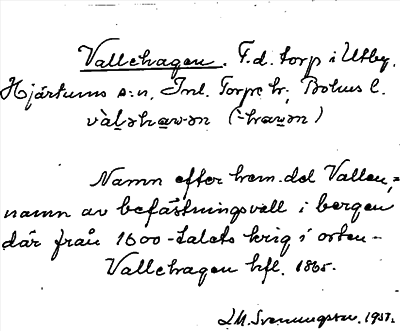 Vallehagen. F.d. torp i Utby,
Hjärtums s:n, Inl. Torpe hr, Bohus l.
vàləhawən (-hawən)
Namn efter hem.del Vallen,
namn av befästningsvall i bergen
där från 1600-talets krig i orten -
Vallehagen hfl. 1865.
1937.